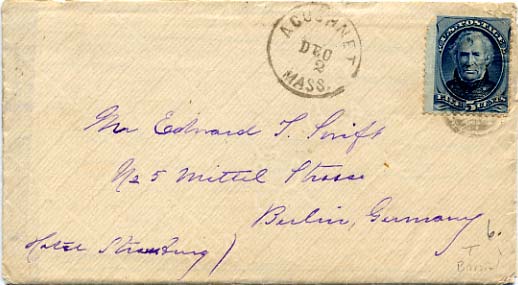 ACUSHNET
DEC
2
MASS.
U.S. POSTAGE
FIVE 5 CENTS
Mr Edward T. Swift
No 5 Mittel Strasse
Berlin, Germany
Hotel Strassburg)
6.
T